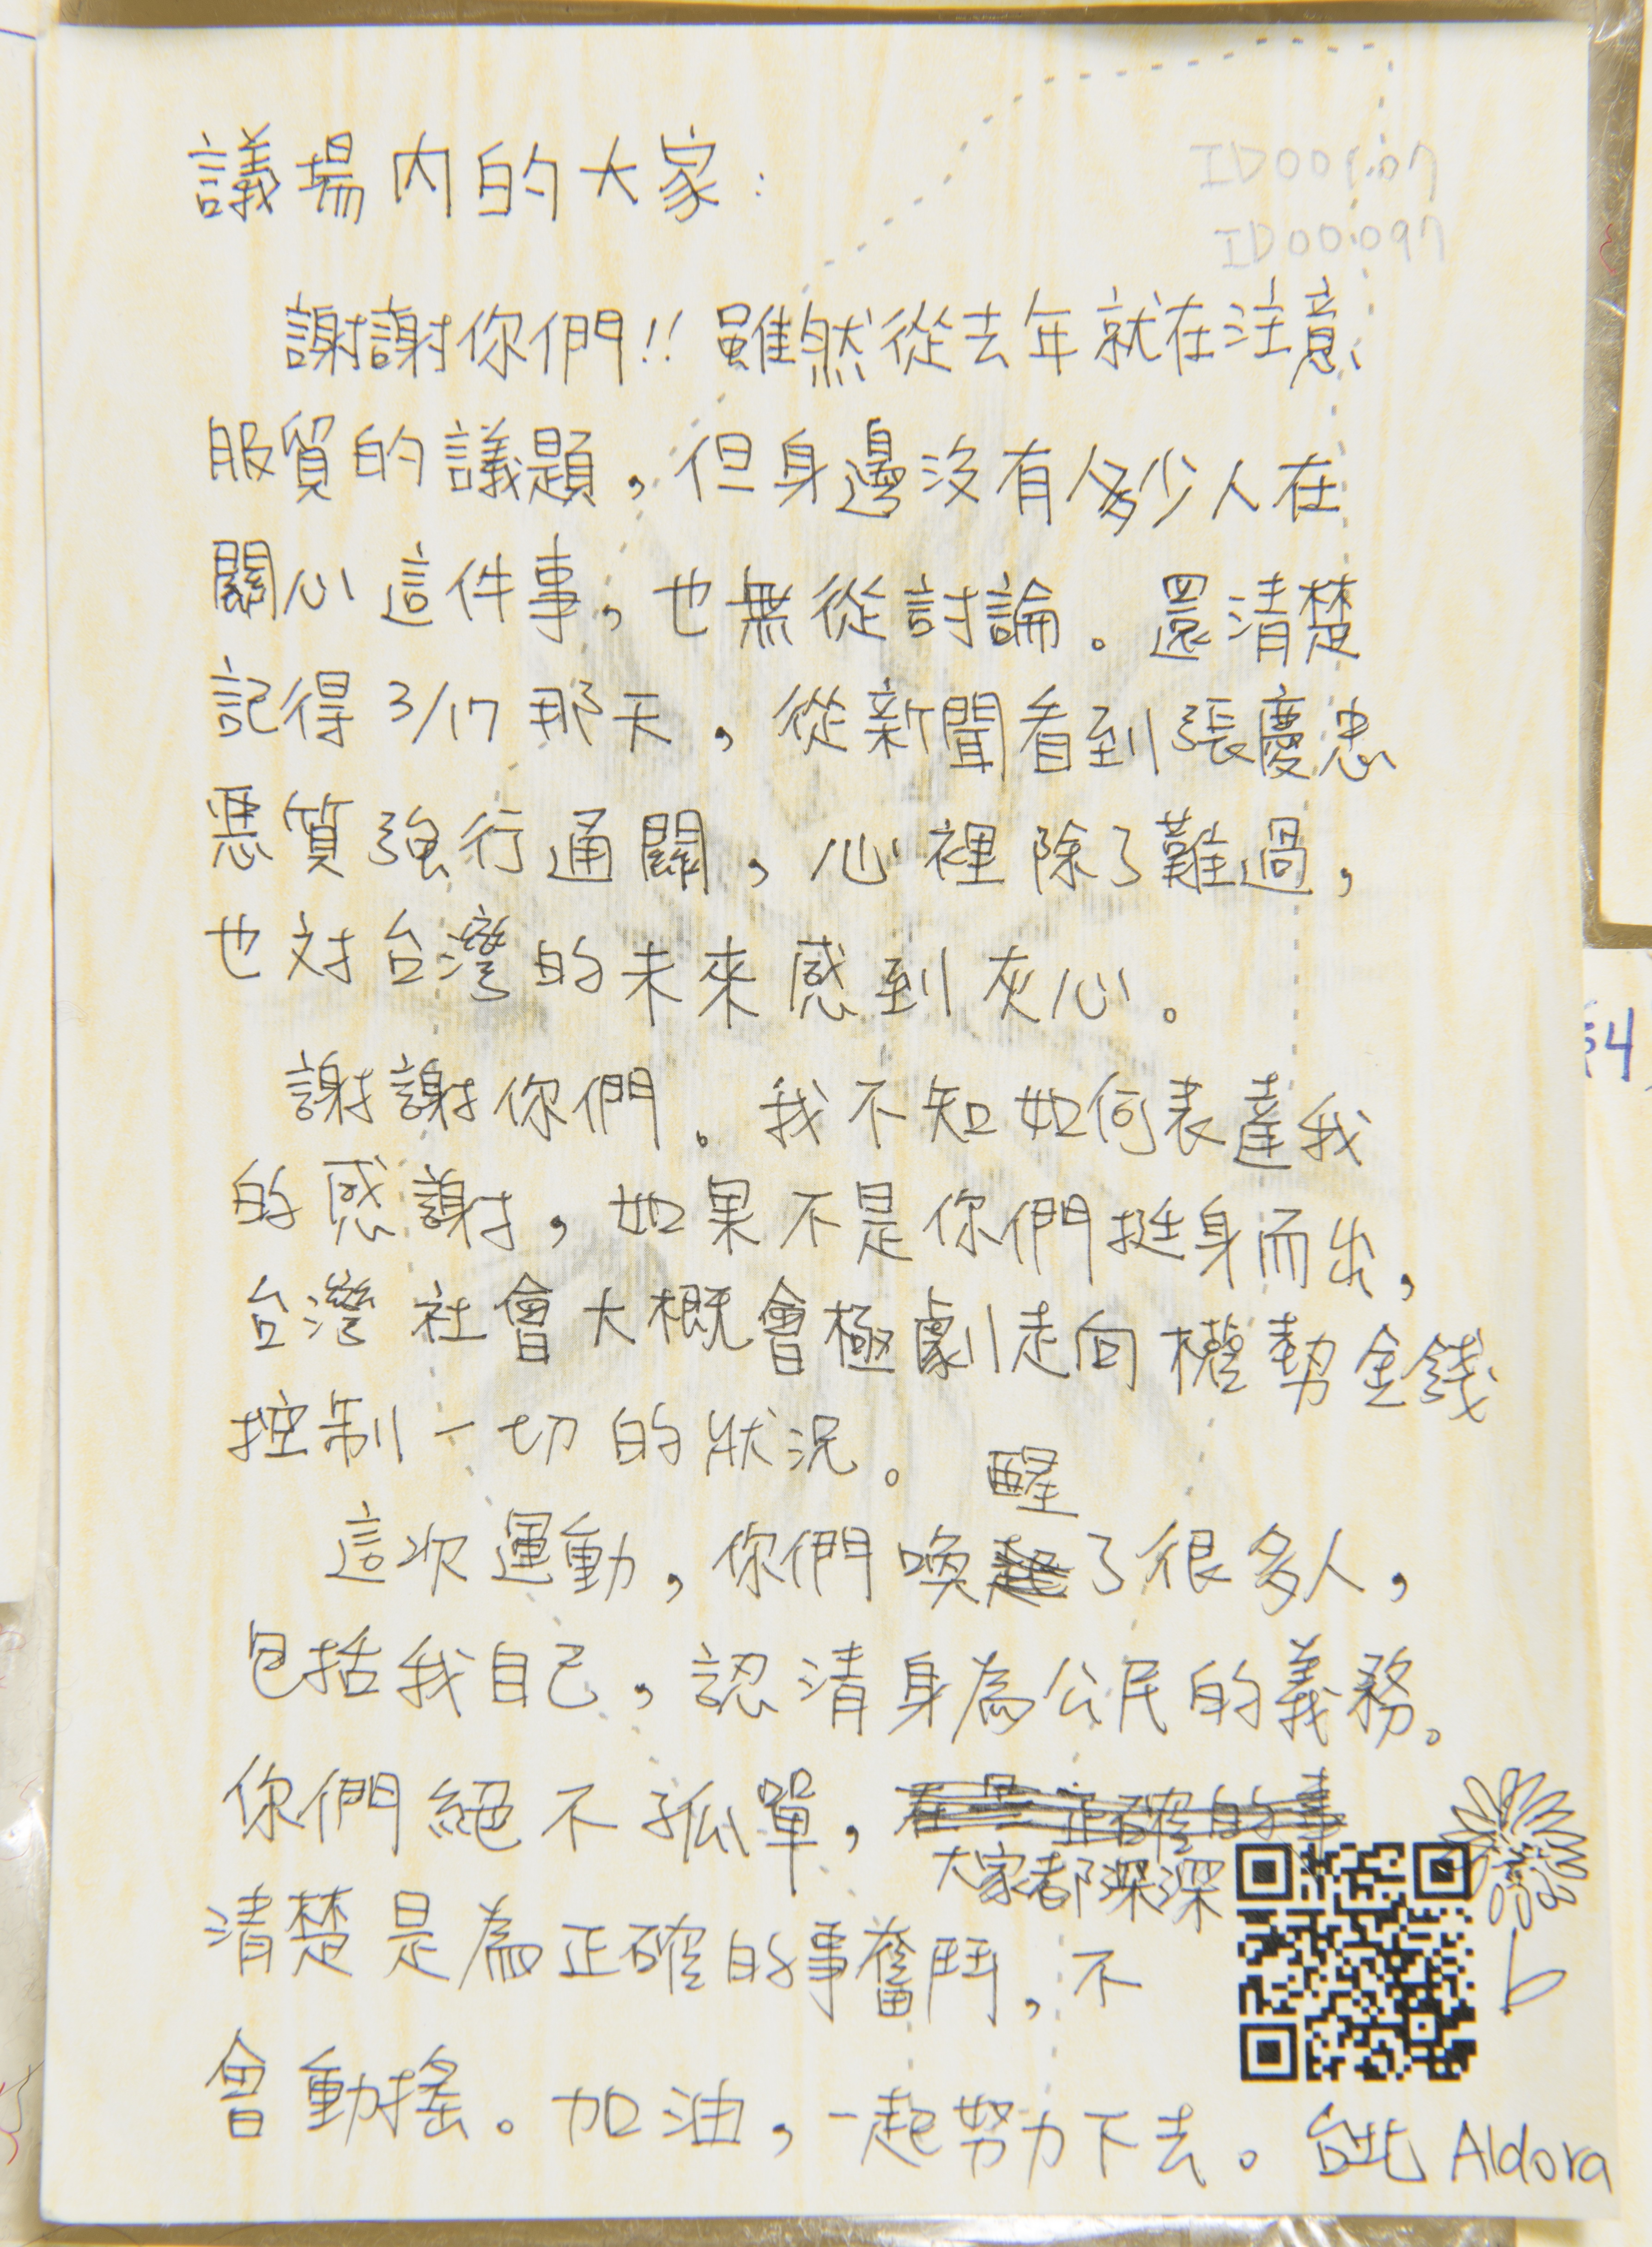 議場內的大家:
ID00107
ID00097
謝謝你們!! 雖然從去年就在注意
服貿的議題,但身邊沒有多少人在
關心這件事,也無從討論。還清楚
記得 3/17 那天,從新聞看到張慶忠
惡質強行通關,心裡除了難過,
也对台灣的未來感到灰心。
謝謝你們。我不知如何表達我
的感謝,如果不是你們挺身而出,
台灣社會大概會極劇走向權勢金錢
控制一切的狀況。
這次運動,你們喚醒了很多人,
包括我自己,認清身為公民的義務。
你們絕不孤單,
大家都深深
清楚是為正確的事奮鬥,不
會動搖。加油,一起努力下去。台北 Aldora
54